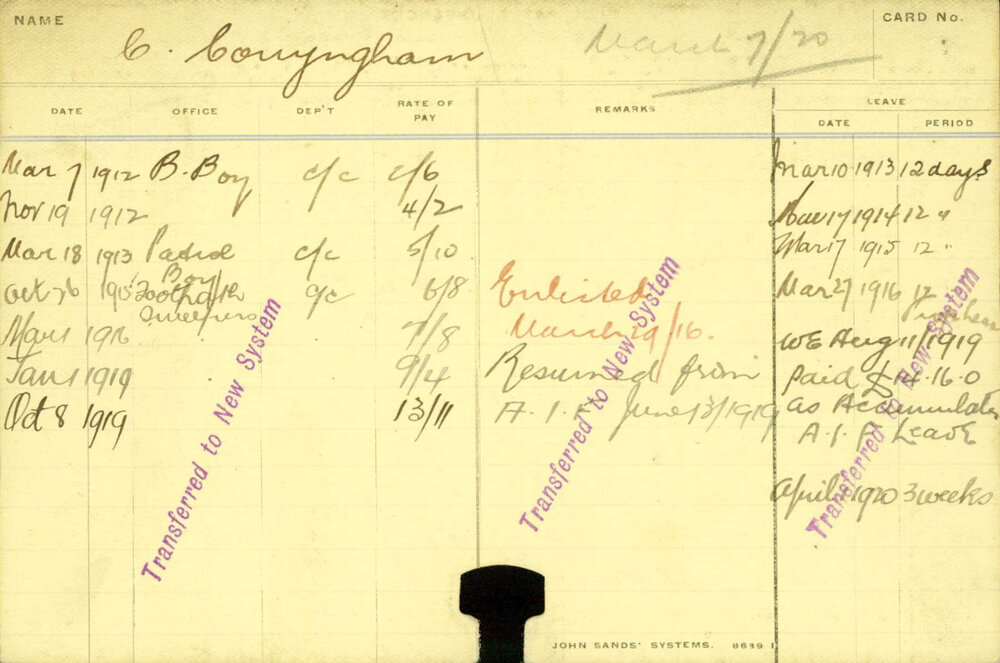 NAME
C. Conyngham
March 7/20
CARD No.
DATE OFFICE DEP'T RATE OF PAY REMARKS LEAVE
DATE PERIOD
Mar 7 1912 B. Boy c/c c/6 Mar 10 1913 12 days
Nov 19 1912 4/2 Mar 17 1914 12 "
Mar 18 1913 c/c 5/10 Mar 17 1915 12 "
Boy
Oct 26 1915 c/c 6/8 Enlisted Mar 27 1916 12
Sweepers
Mar 1 1916 7/8 March 29/16. WE Aug 11/1919
Jan 1 1919 9/4 Resumed from Paid £4.16.0
Oct 8 1919 13/11 A.I.F. June 13/1919 as Accumulated
A.I.F Leave
April 1920 3 weeks
Transferred to New System
Transferred to New System
Transferred to New System
JOHN SANDS' SYSTEMS. 8699